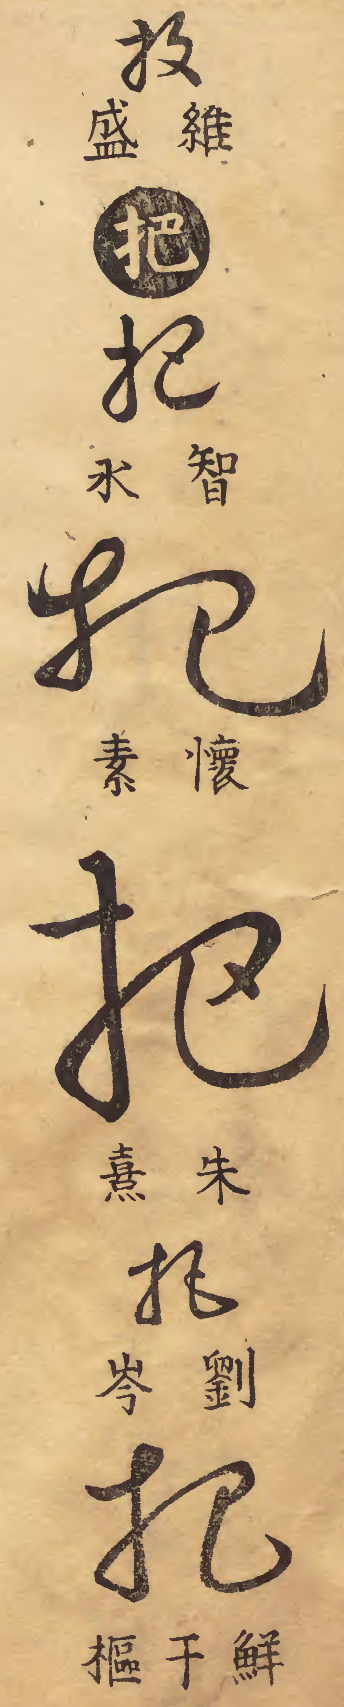 投
維盛
把
把
智永
把
懷素
把
朱熹
把
劉岑
把
鮮于樞